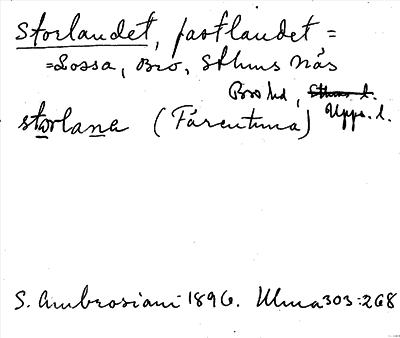 storlandet, fastlandet =
=Lossa, Bro, Sthms näs
Bro hd, Sthms l.
Upps. l.
storlana (Färentuna)
S. Ambrosiani 1896. Ulma 303:268